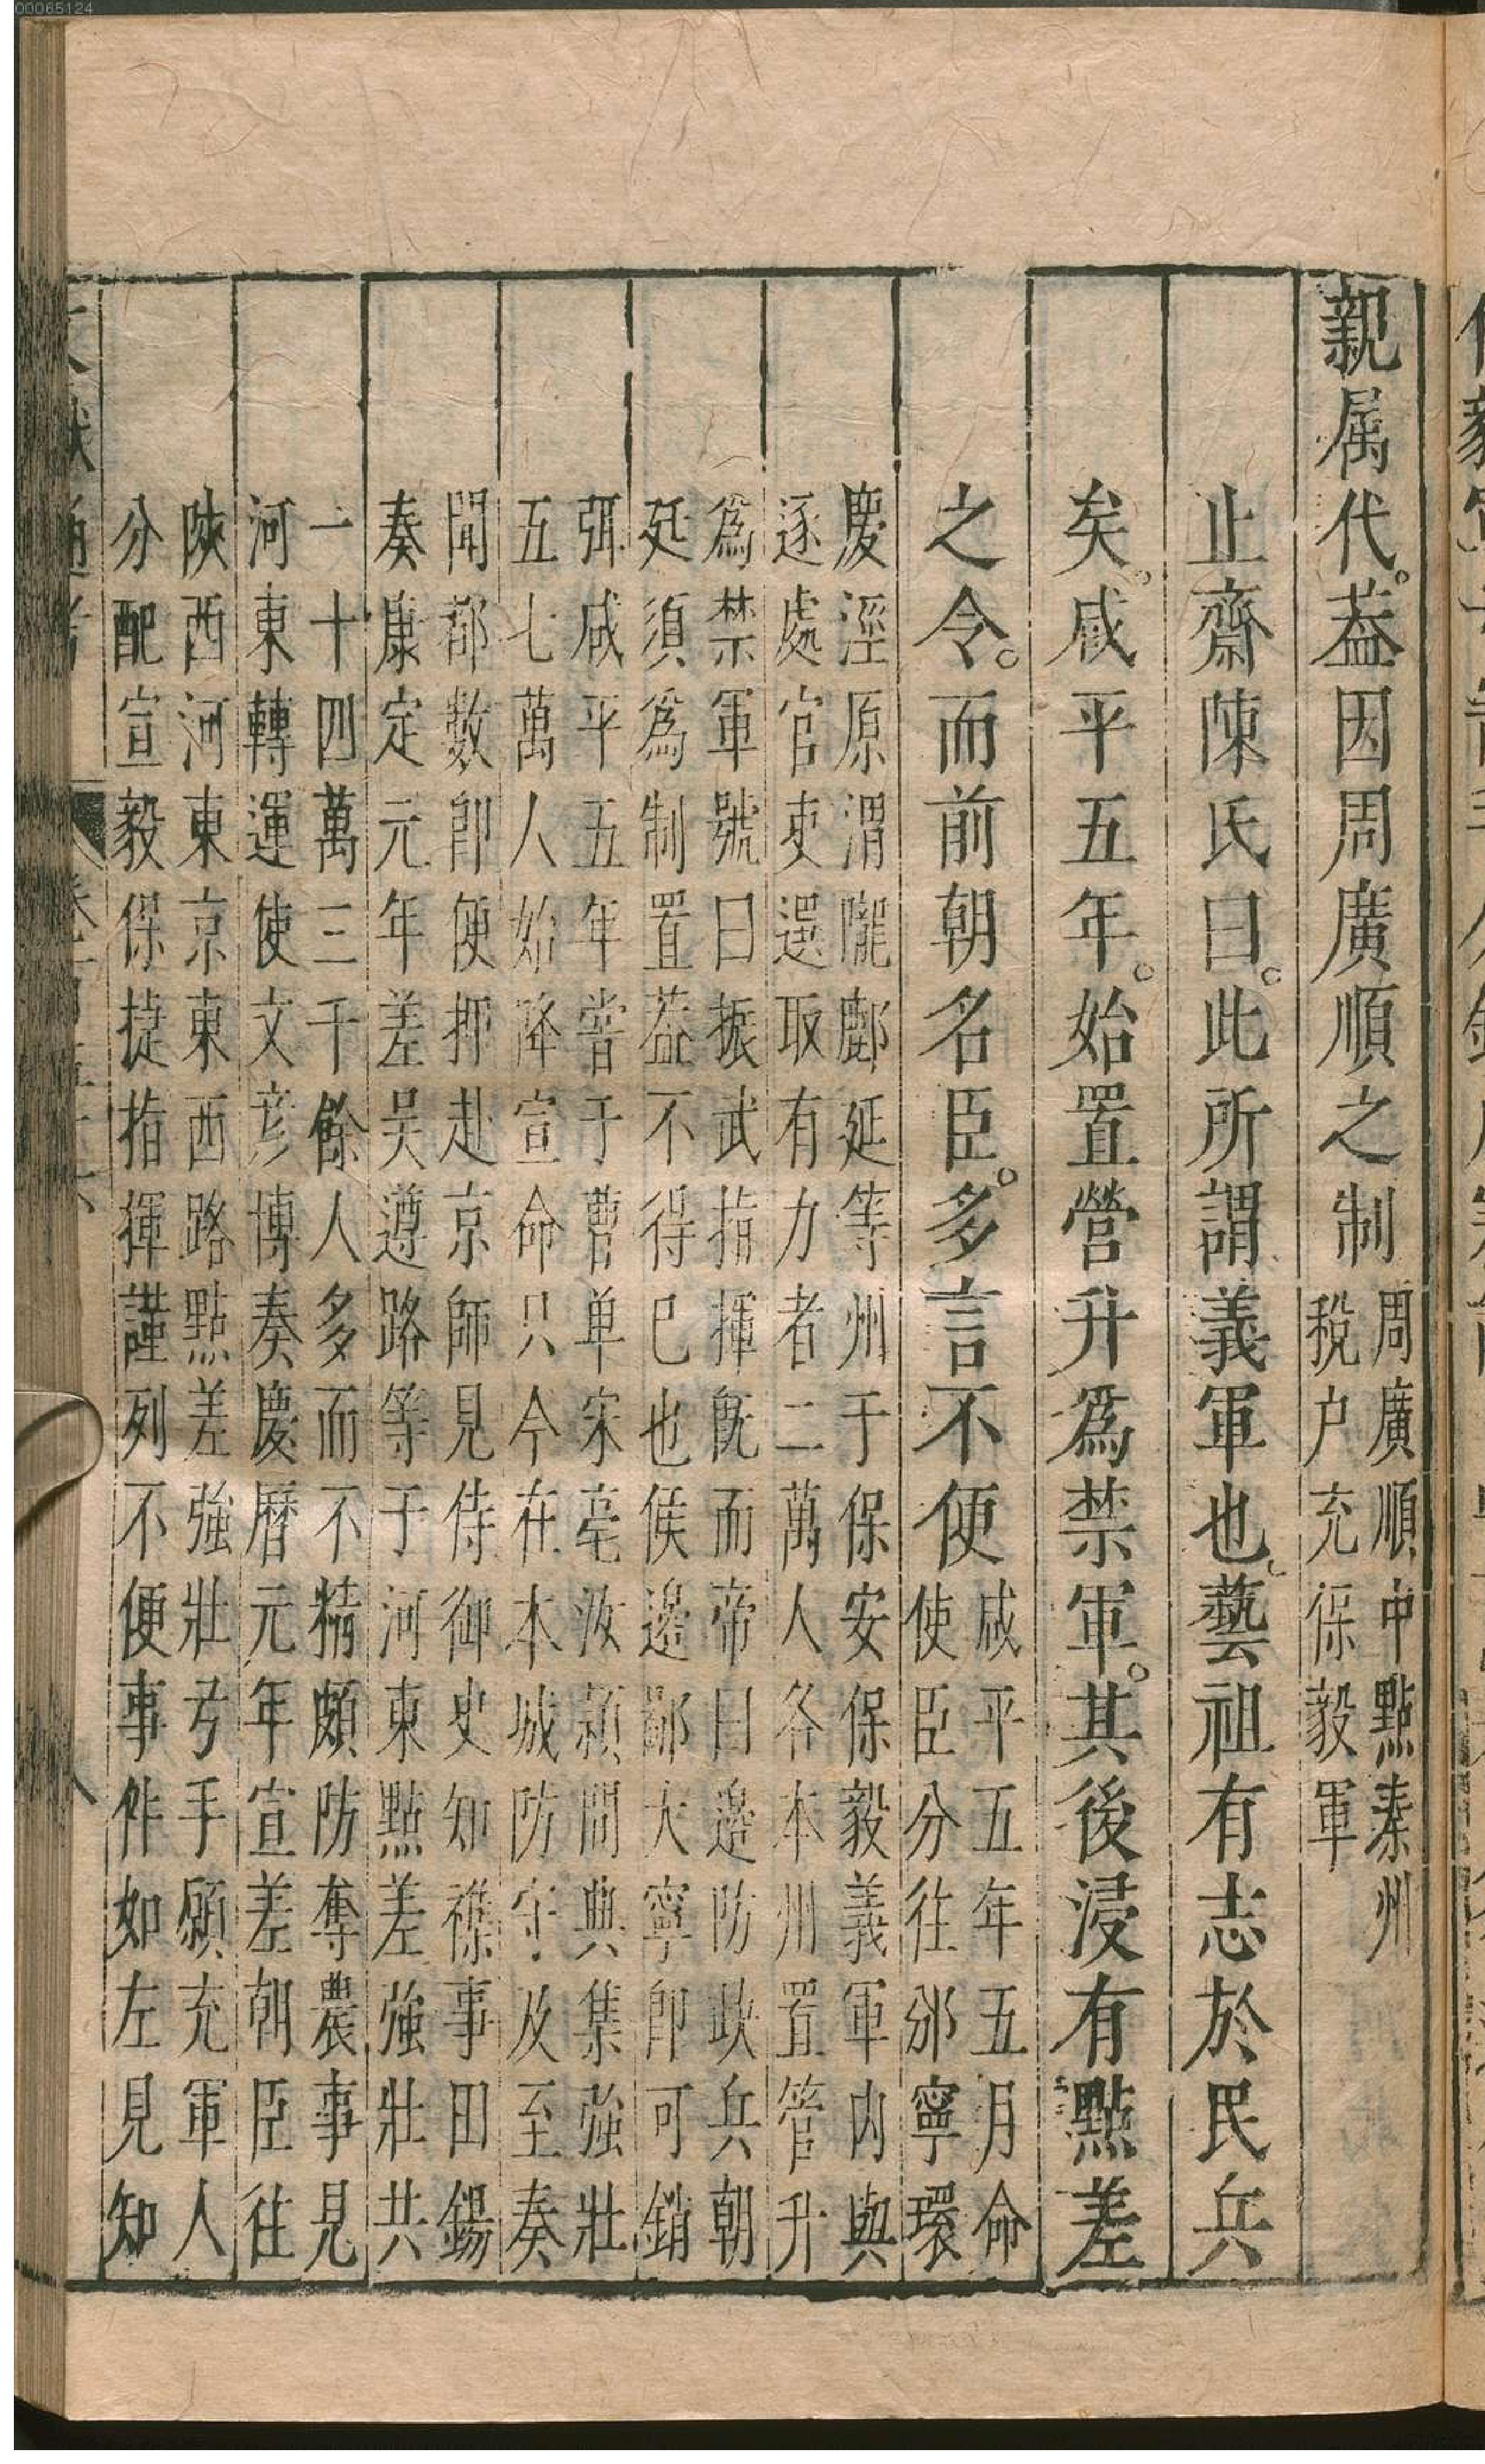 00065124
親属代蓋因周廣順之制周廣順中點秦州
稅户充保毅軍
止齋陳氏曰此所謂義軍也藝祖有志於民兵
矣咸平五年始置營升爲禁軍其後浸有點差
之令而前朝名臣多言不便咸平五年五月命
使臣分往邠寧環
慶涇原渭隴鄜延等州于保安保毅義軍内與
逐處官吏選取有力者二萬人各本州置管升
爲禁軍號曰振武指揮旣而帝曰邊防政兵朝
延須爲制置葢不得巳也候邊鄙大寧即可銷
弭咸平五年嘗于曹单宋亳汝潁間典集強壯
五七萬人始降宣命只今在本城防守及至奏
聞都數即便押赴京師見侍御史知襍事田錫
奏康定元年差吴遵路等于河東點差強壯共
一十四萬三千餘人多而不精頗防奪農事見
河東轉運使文彦博奏慶曆元年宣差朝臣往
陜西河東京東西路點差強壯弓手願充軍人
分配宣毅保捷指揮謹列不便事件如左見知